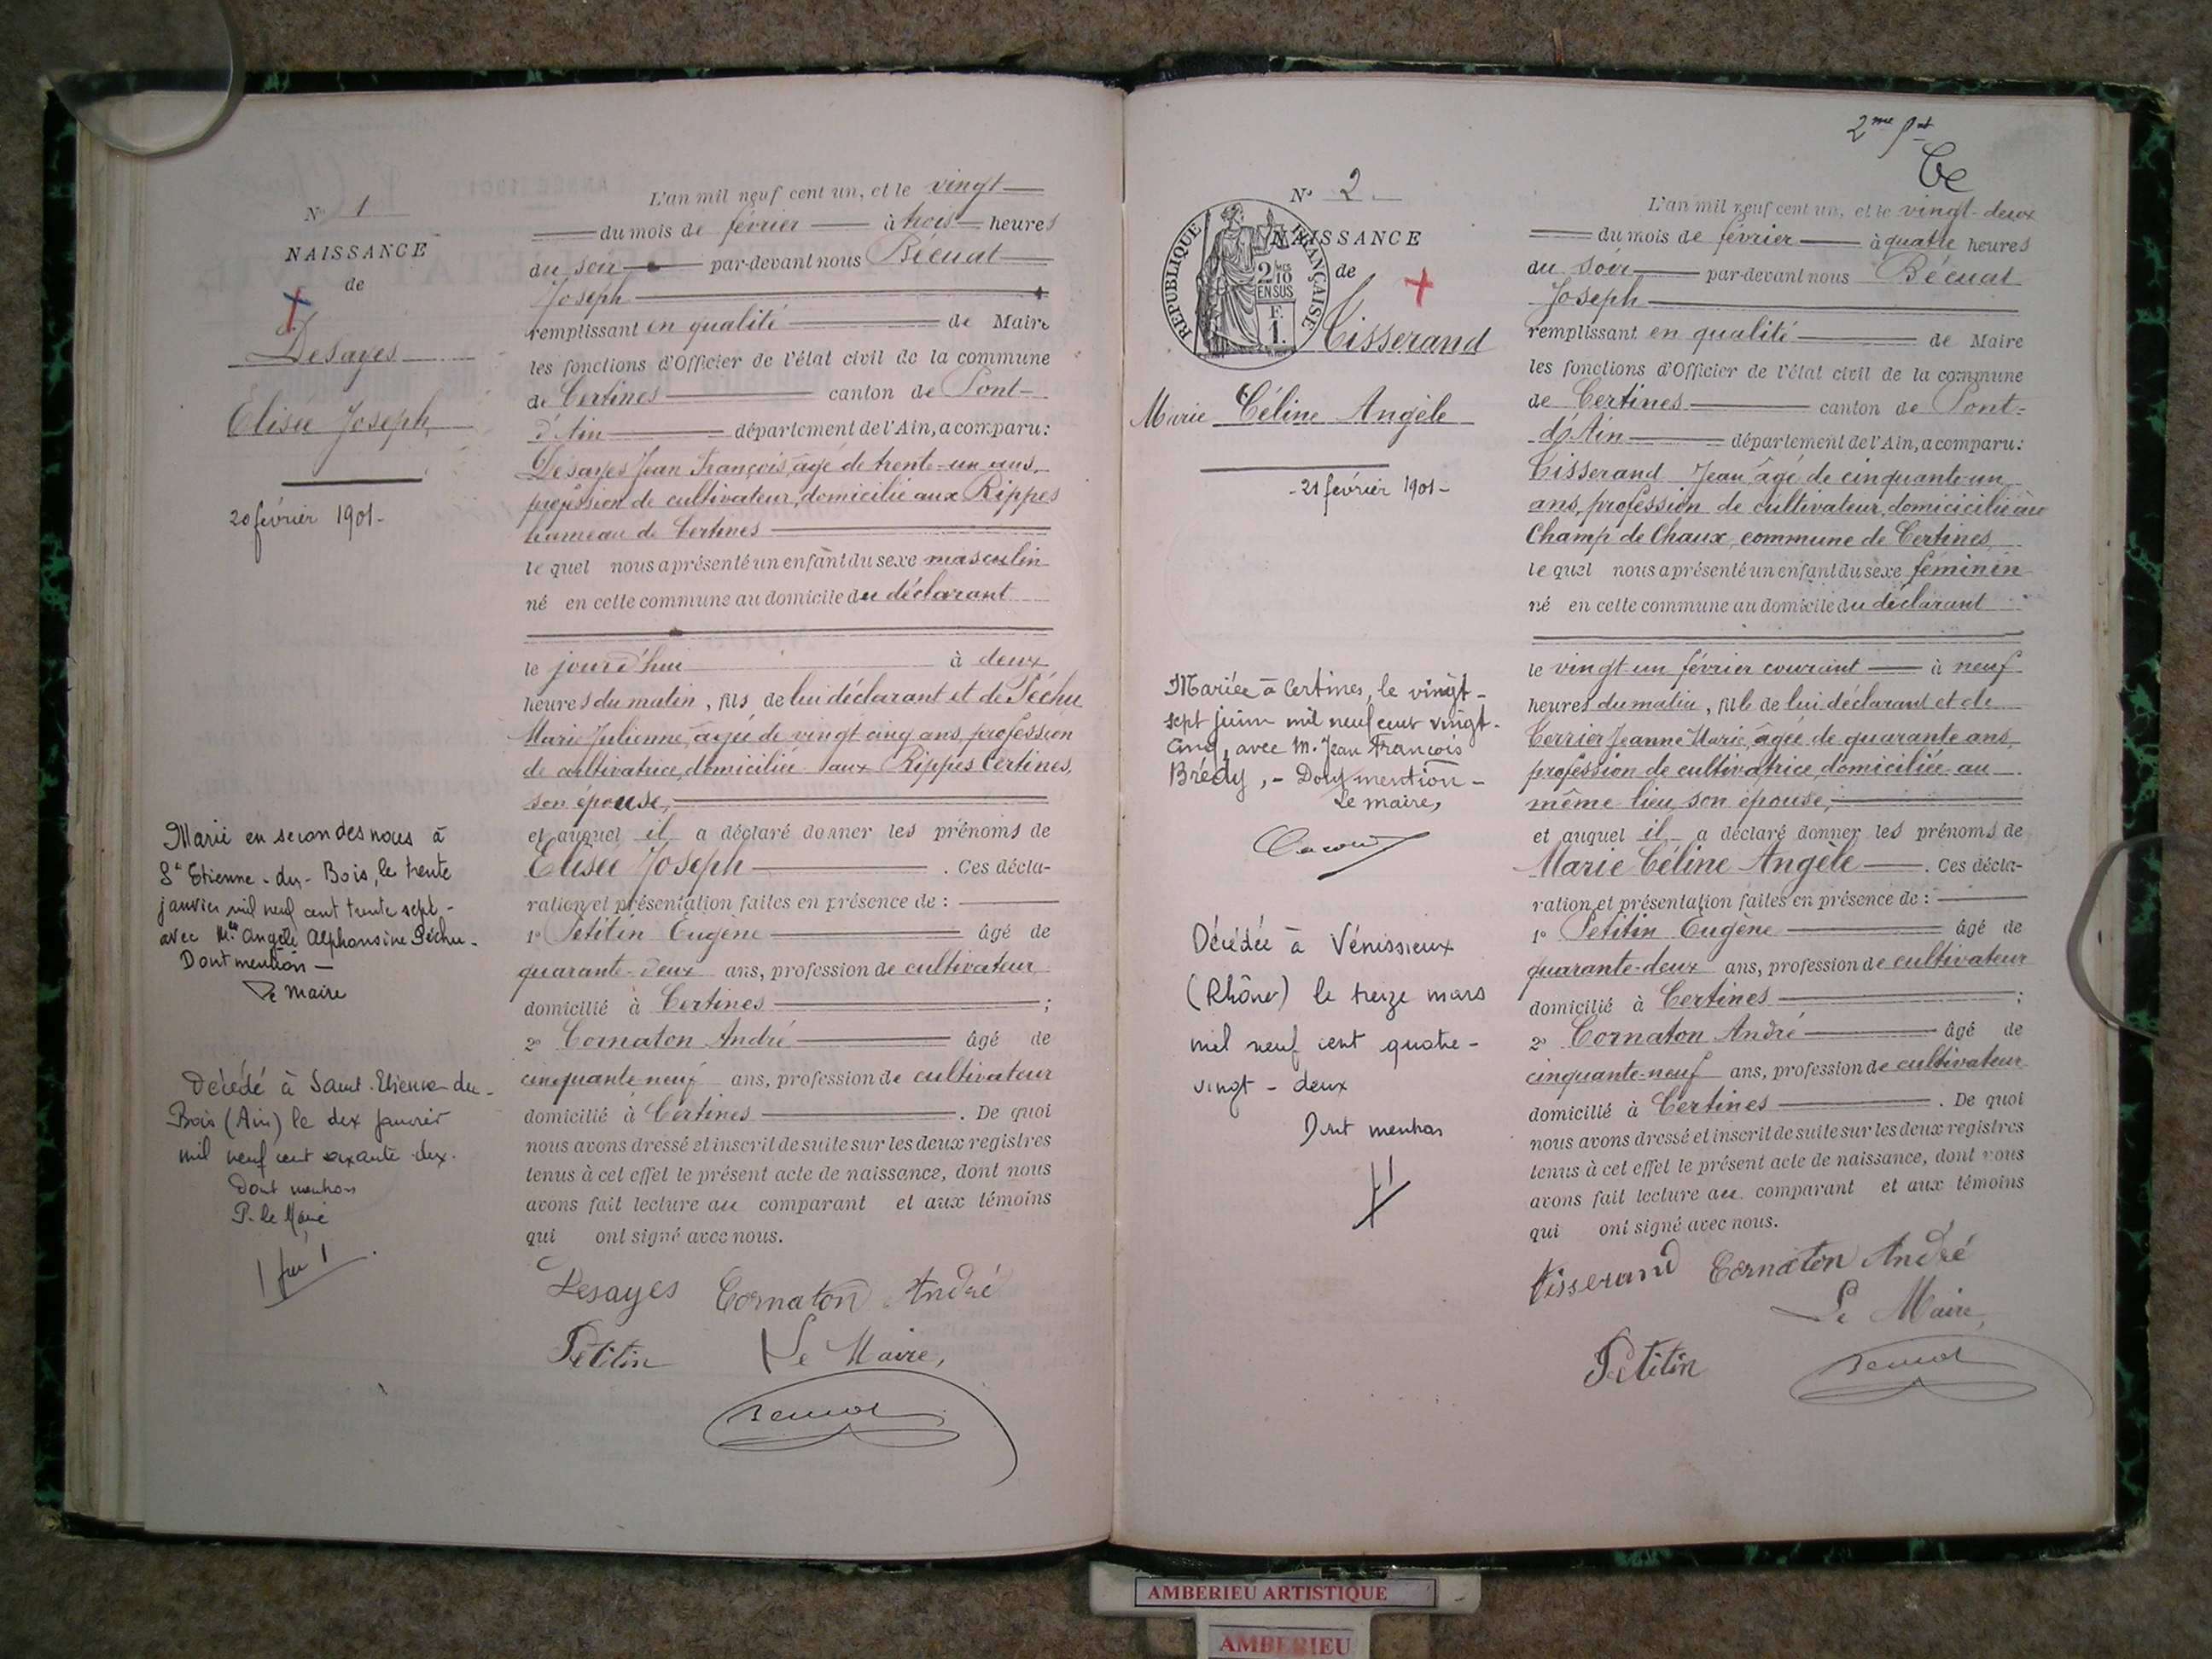 N° 1
NAISSANCE
de
Desayes
Elisée Joseph
20 février 1901 -
Marié en secondes noces à
St Etienne - du - Bois, le trente
janvier mil neuf cent trente sept -
avec Mlle Angèle Alphonsine Péchu -
Dont mention -
Le Maire
Décédé à Saint-Etienne-du-
Bois (Ain) le dix janvier
mil neuf cent soixante-dix.
Dont mention
P. le Maire
L'an mil neuf cent un, et le vingt
du mois de février à trois heures
du soir par-devant nous Bécuat
Joseph
remplissant en qualité de Maire
les fonctions d'Officier de l'état civil de la commune
de Certines canton de Pont-
d'Ain département de l'Ain, a comparu :
Desayes Jean François, âgé de trente-un ans,
profession de cultivateur, domicilié aux Rippes
hameau de Certines
le quel nous a présenté un enfant du sexe masculin
né en cette commune au domicile du déclarant
le jourd'hui à deux
heures du matin, fils de lui déclarant et de Péchu
Marie Julienne, âgée de vingt cinq ans, profession
de cultivatrice, domiciliée aux Rippes Certines,
son épouse,
et auquel il a déclaré donner les prénoms de
Elisée Joseph . Ces décla-
ration et présentation faites en présence de :
1° Petitin Eugène âgé de
quarante-deux ans, profession de cultivateur
domicilié à Certines ;
2° Cornaton André âgé de
cinquante neuf ans, profession de cultivateur
domicilié à Certines . De quoi
nous avons dressé et inscrit de suite sur les deux registres
tenus à cet effet le présent acte de naissance, dont nous
avons fait lecture au comparant et aux témoins
qui ont signé avec nous.
Desayes Cornaton André
Petitin Le Maire,
Bécuat
2me
N° 2
NAISSANCE
de
REPUBLIQUE FRANÇAISE
2/10
EN SUS
F.
1.
Tisserand
Marie Céline Angèle
- 21 février 1901 -
Mariée à Certines, le vingt-
sept juin mil neuf cent vingt-
cinq, avec M. Jean François
Brédy, - Dont mention -
Le maire,
Décédée à Vénissieux
(Rhône) le treize mars
mil neuf cent quatre-
vingt - deux
Dont mention
L'an mil neuf cent un, et le vingt-deux
du mois de février à quatre heures
du soir par-devant nous Bécuat
Joseph
remplissant en qualité de Maire
les fonctions d'Officier de l'état civil de la commune
de Certines canton de Pont-
d'Ain département de l'Ain, a comparu :
Tisserand Jean âgé de cinquante-un
ans, profession de cultivateur, domicicilié au
Champ de Chaux, commune de Certines,
le quel nous a présenté un enfant du sexe féminin
né en cette commune au domicile du déclarant
le vingt-un février courant à neuf
heures du matin, fille de lui déclarant et de
Terrier Jeanne Marie, âgée de quarante ans,
profession de cultivatrice, domiciliée au
même lieu, son épouse,
et auquel il a déclaré donner les prénoms de
Marie Céline Angèle . Ces décla-
ration et présentation faites en présence de :
1° Petitin Eugène âgé de
quarante-deux ans, profession de cultivateur
domicilié à Certines ;
2° Cornaton André âgé de
cinquante-neuf ans, profession de cultivateur
domicilié à Certines . De quoi
nous avons dressé et inscrit de suite sur les deux registres
tenus à cet effet le présent acte de naissance, dont nous
avons fait lecture au comparant et aux témoins
qui ont signé avec nous.
Tisserand Cornaton André
Le Maire,
Petitin Bécuat
AMBERIEU ARTISTIQUE
AMBERIEU